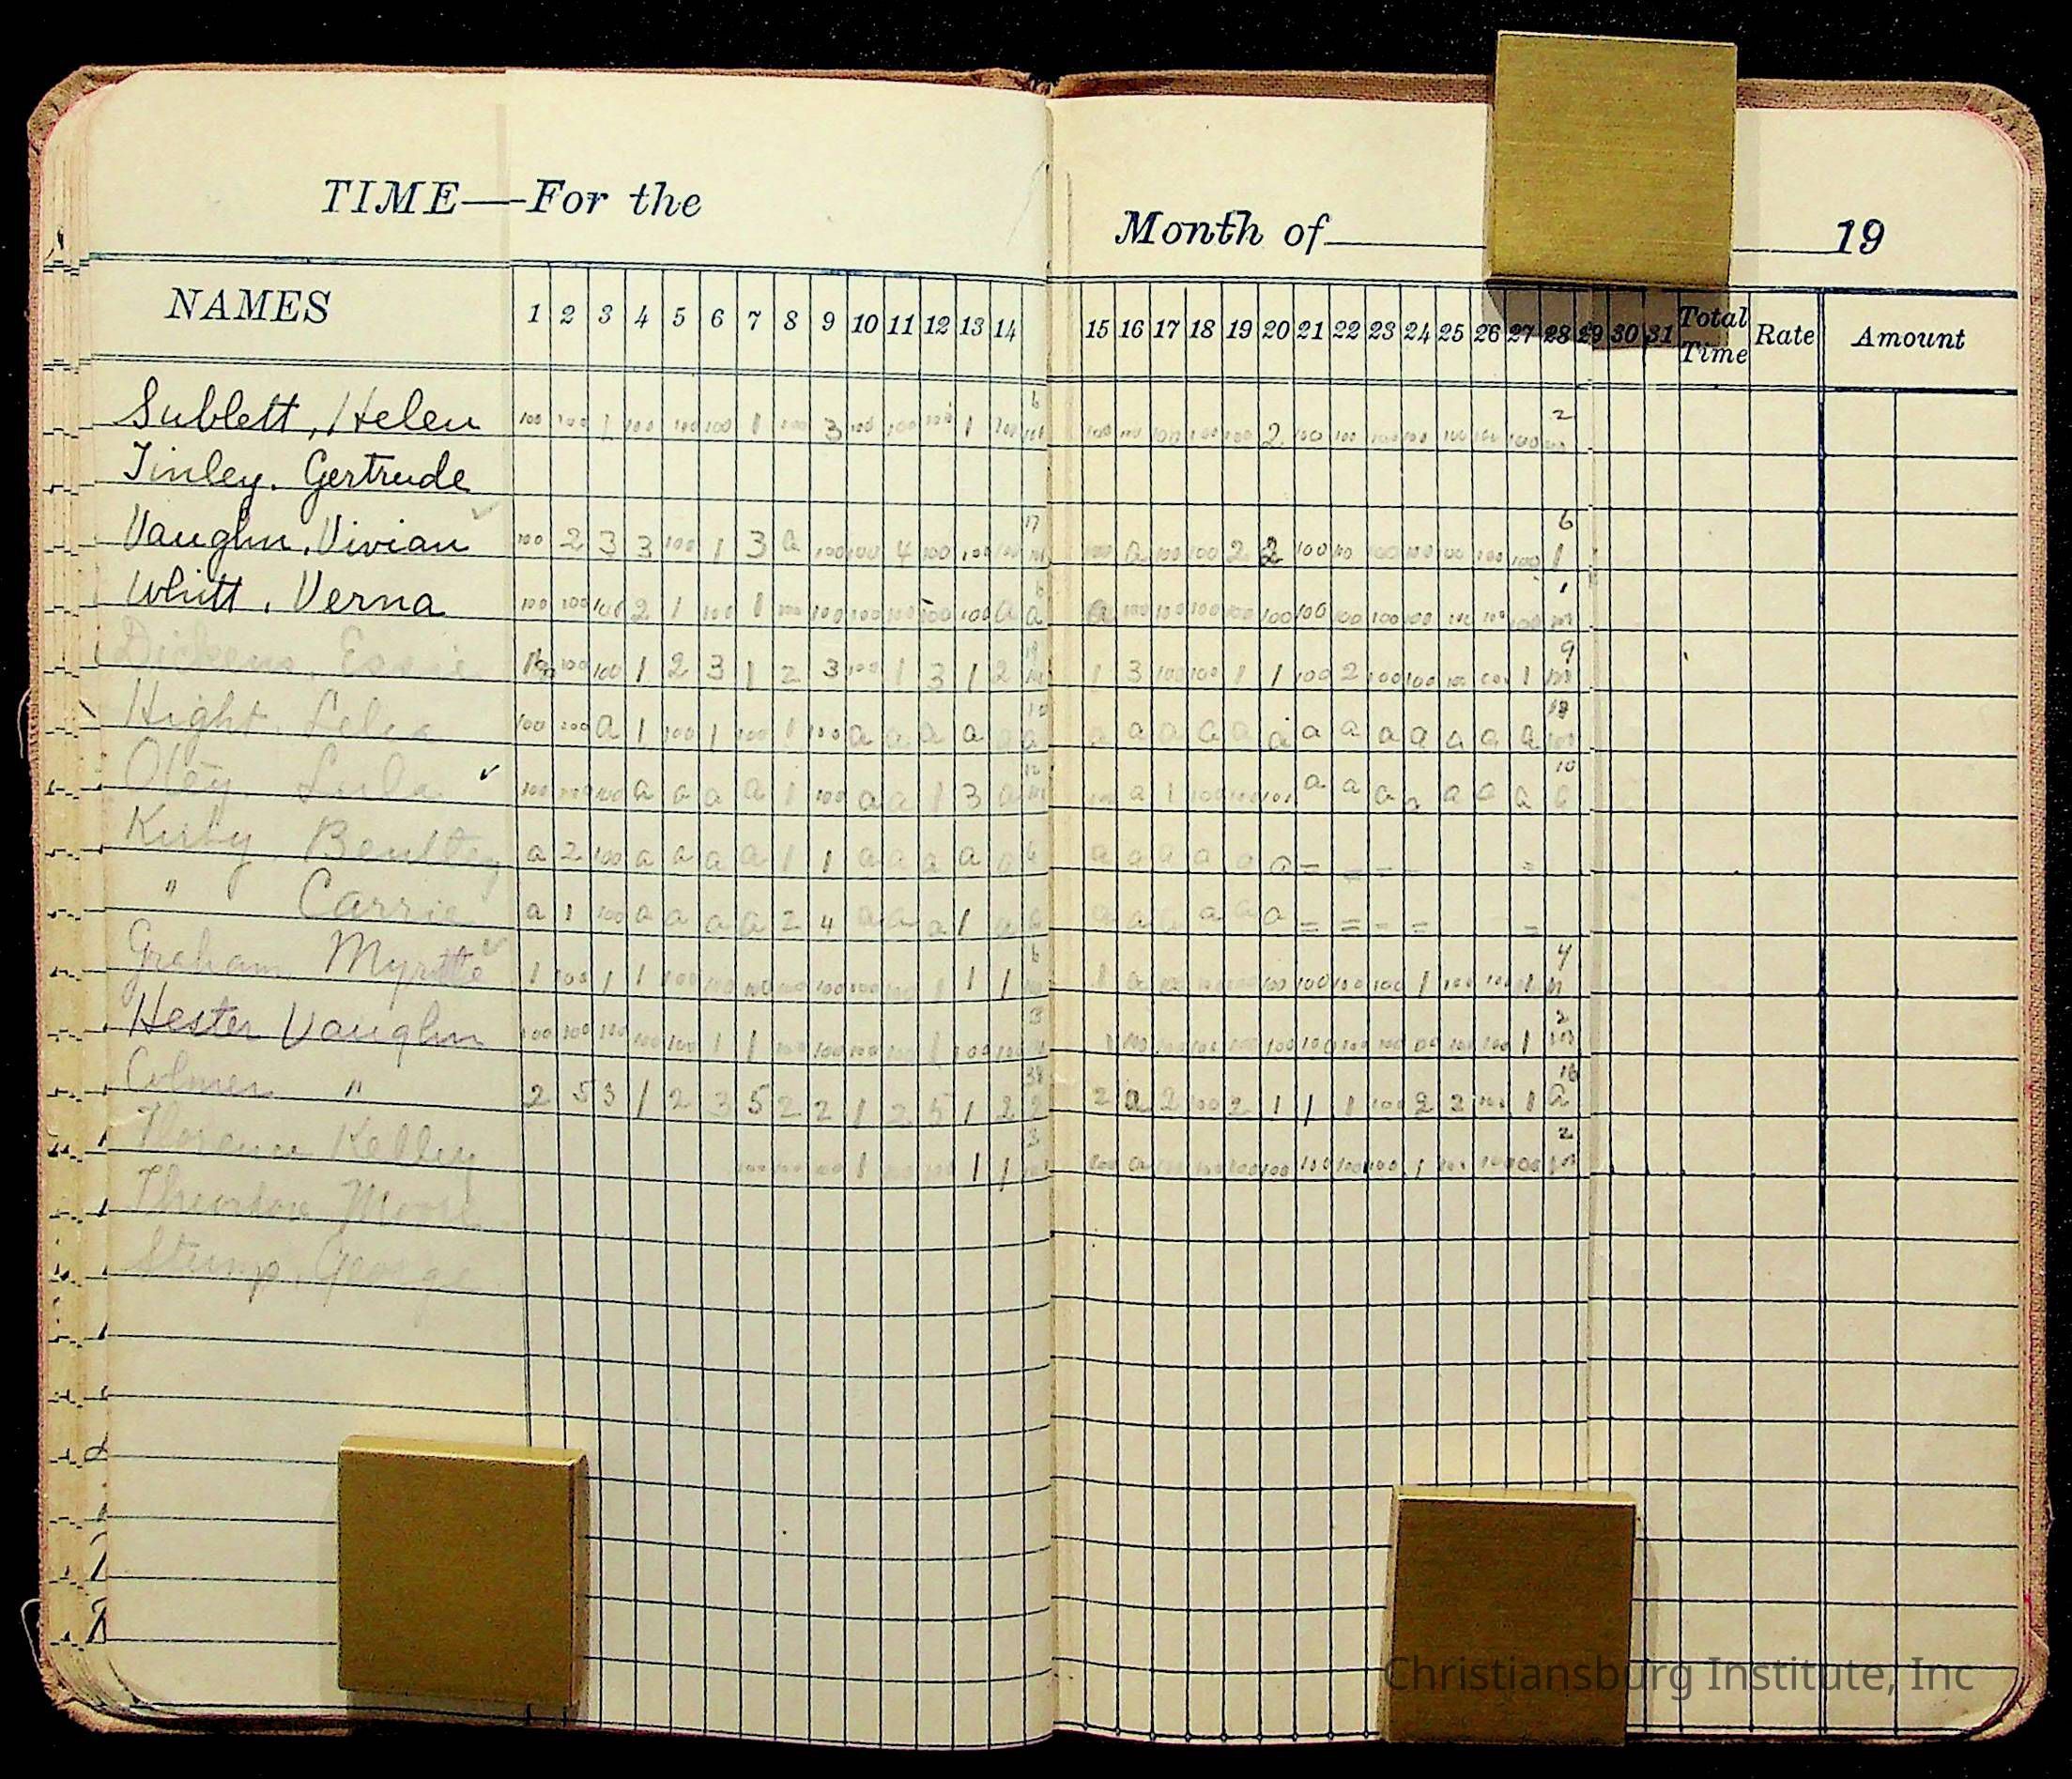 TIME—For the
Month of 19
NAMES 1 2 3 4 5 6 7 8 9 10 11 12 13 14 15 16 17 18 19 20 21 22 23 24 25 26 27 28 29 30 31 Total Time Rate Amount
Sublett, Helen 100 100 1 100 100 100 1 100 3 100 100 100 1 100 6 100 100 100 100 100 100 2 100 100 100 100 100 100 100 2
Tinley, Gertrude
Vaughn, Vivian 100 2 3 3 100 1 3 a 100 100 4 100 100 100 17 100 a 100 100 2 2 100 100 100 100 100 100 100 6 1
Whitt, Verna 100 100 100 2 1 100 1 100 100 100 100 100 100 a 6 a a 100 100 100 100 100 100 100 100 100 100 100 100 1
Dickens, Essie 100 100 1 2 3 1 2 3 100 1 3 1 2 19 1 3 100 100 1 1 100 2 100 100 100 100 1 9
Hight, Lelia 100 100 a 1 100 1 100 1 100 a a a a a a a a a a a a a a a a a a
Otey, Lula 100 100 100 a a a a 1 100 a a 1 3 a 12 100 a 1 100 100 100 a a a a a a a 10
Kirby a 2 100 a a a a 1 1 a a a a a 6 a a a a a a = = = =
" Carrie a 1 100 a a a a 2 4 a a a 1 a a a a a a a = = = = =
Graham Myrtle 1 100 1 1 100 100 100 100 100 100 100 1 1 1 6 1 a 100 100 100 100 100 100 100 1 100 100 1 4
Hester Vaughn 100 100 100 100 100 1 1 100 100 100 100 1 100 100 3 1 100 100 100 100 100 100 100 100 100 100 100 1 2
" 2 5 3 1 2 3 5 2 2 1 2 5 1 2 38 2 2 a 2 100 2 1 1 1 100 2 2 100 1 16 a
Florence Kelley 100 100 100 1 100 100 1 1 3 100 100 a 100 100 100 100 100 100 100 1 100 100 100 2
Moore
Stump, George
Christiansburg Institute, Inc